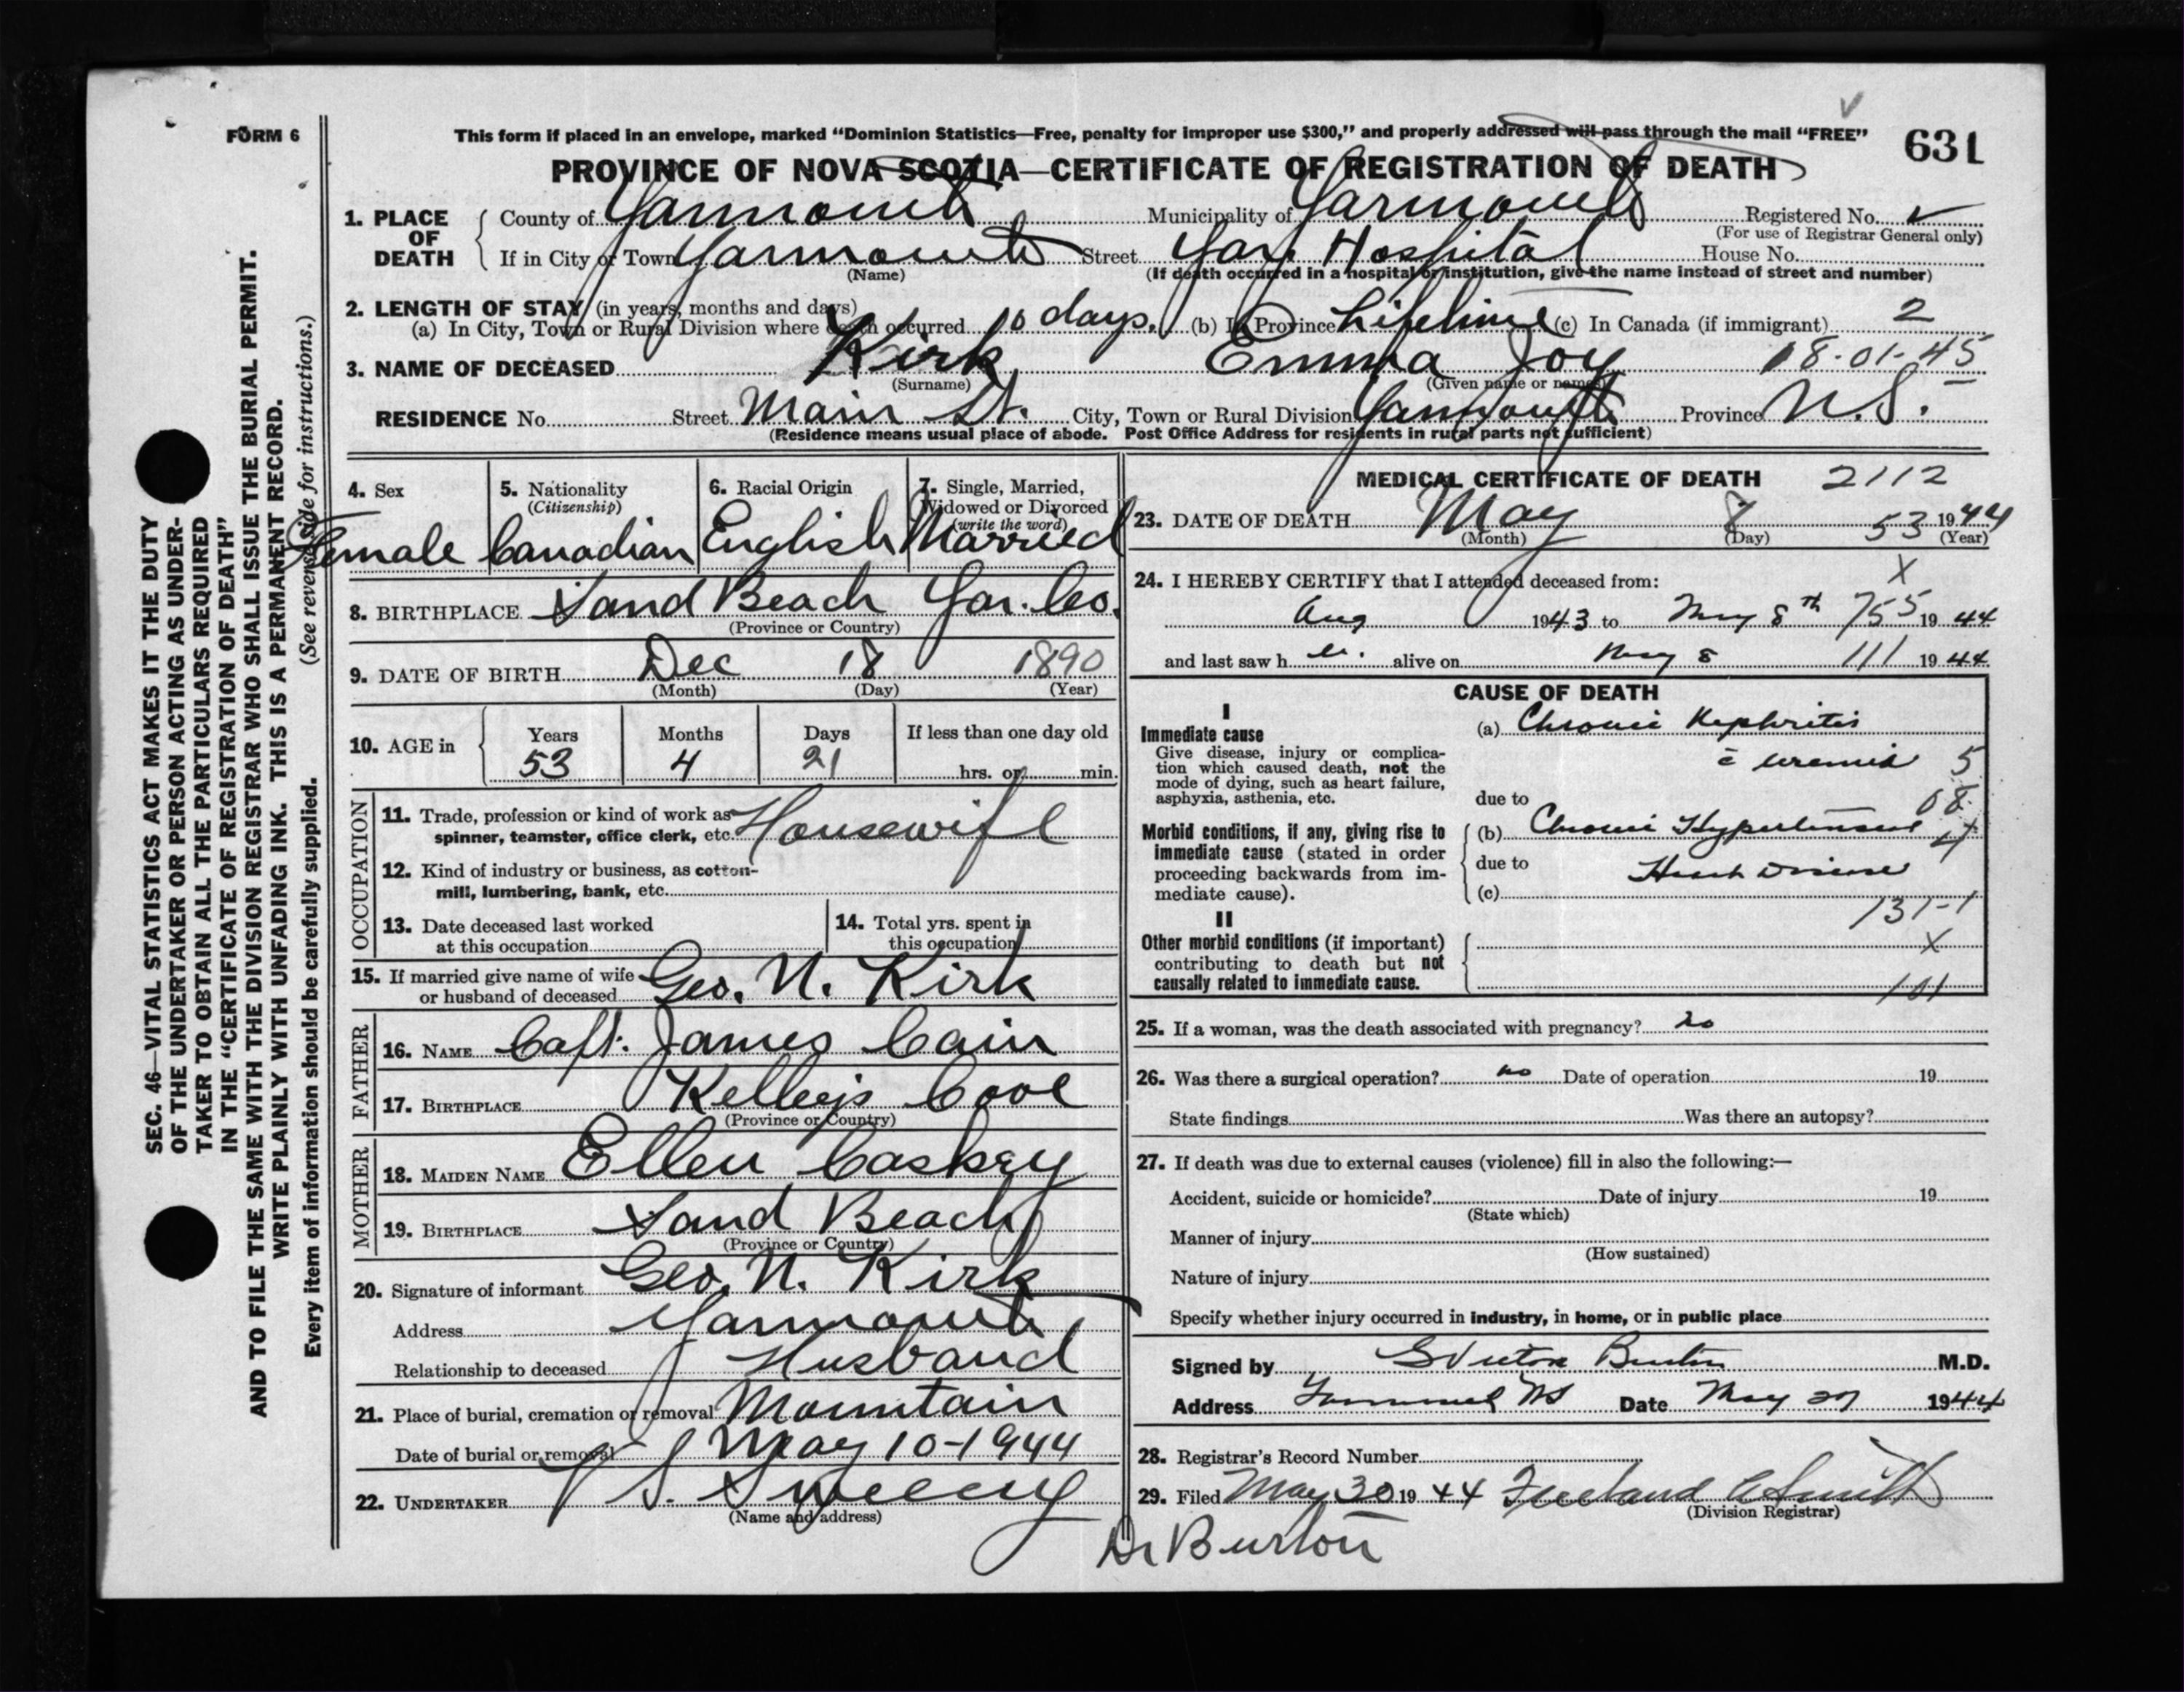 FORM 6
This form if placed in an envelope, marked "Dominion Statistics—Free, penalty for improper use $300," and properly addressed will pass through the mail "FREE"
631
PROVINCE OF NOVA SCOTIA—CERTIFICATE OF REGISTRATION OF DEATH
1. PLACE OF DEATH County of Yarmouth Municipality of Yarmouth Registered No.
(For use of Registrar General only)
If in City or Town Yarmouth Street Yar. Hospital House No.
(Name) (If death occurred in a hospital or institution, give the name instead of street and number)
2. LENGTH OF STAY (in years, months and days)
(a) In City, Town or Rural Division where death occurred 10 days. (b) In Province Lifetime (c) In Canada (if immigrant) 2
3. NAME OF DECEASED Kirk Emma Joy 18-01-45
(Surname) (Given name or names)
RESIDENCE No. Street Main St. City, Town or Rural Division Yarmouth Province N.S.
(Residence means usual place of abode. Post Office Address for residents in rural parts not sufficient)
4. Sex 5. Nationality (Citizenship) 6. Racial Origin 7. Single, Married, Widowed or Divorced (write the word)
Female Canadian English Married
8. BIRTHPLACE Sand Beach Yar. Co.
(Province or Country)
9. DATE OF BIRTH Dec 18 1890
(Month) (Day) (Year)
10. AGE in Years Months Days If less than one day old
53 4 21 hrs. or min.
OCCUPATION
11. Trade, profession or kind of work as
spinner, teamster, office clerk, etc. Housewife
12. Kind of industry or business, as cotton-
mill, lumbering, bank, etc.
13. Date deceased last worked
at this occupation
14. Total yrs. spent in
this occupation
15. If married give name of wife
or husband of deceased Geo. N. Kirk
FATHER
16. NAME Capt. James Cain
17. BIRTHPLACE Kelley's Cove
(Province or Country)
MOTHER
18. MAIDEN NAME Ellen Caskey
19. BIRTHPLACE Sand Beach
(Province or Country)
20. Signature of informant Geo. N. Kirk
Address Yarmouth
Relationship to deceased Husband
21. Place of burial, cremation or removal Mountain
Date of burial or removal May 10-1944
22. UNDERTAKER V S. Sweeny
(Name and address)
MEDICAL CERTIFICATE OF DEATH 2112
23. DATE OF DEATH May 8 53 1944
(Month) (Day) (Year)
24. I HEREBY CERTIFY that I attended deceased from: X
Aug 1943 to May 8th 755 1944
and last saw h er alive on May 8 111 1944
CAUSE OF DEATH
I
Immediate cause
Give disease, injury or complica-
tion which caused death, not the
mode of dying, such as heart failure,
asphyxia, asthenia, etc.
(a) Chronic Nephritis
c̄ uremia 5
due to 08
Morbid conditions, if any, giving rise to
immediate cause (stated in order
proceeding backwards from im-
mediate cause).
(b) Chronic Hypertensive
due to Heart Disease
(c)
131-1
II
Other morbid conditions (if important)
contributing to death but not
causally related to immediate cause.
X
101
25. If a woman, was the death associated with pregnancy? no
26. Was there a surgical operation? no Date of operation 19
State findings Was there an autopsy?
27. If death was due to external causes (violence) fill in also the following:—
Accident, suicide or homicide? Date of injury 19
(State which)
Manner of injury
(How sustained)
Nature of injury
Specify whether injury occurred in industry, in home, or in public place
Signed by G Victor Burton M.D.
Address Yarmouth NS Date May 27 1944
28. Registrar's Record Number
29. Filed May 30 1944 Freeland C Smith
(Division Registrar)
Dr Burton
SEC. 46—VITAL STATISTICS ACT MAKES IT THE DUTY
OF THE UNDERTAKER OR PERSON ACTING AS UNDER-
TAKER TO OBTAIN ALL THE PARTICULARS REQUIRED
IN THE "CERTIFICATE OF REGISTRATION OF DEATH"
AND TO FILE THE SAME WITH THE DIVISION REGISTRAR WHO SHALL ISSUE THE BURIAL PERMIT.
WRITE PLAINLY WITH UNFADING INK. THIS IS A PERMANENT RECORD.
Every item of information should be carefully supplied. (See reverse side for instructions.)